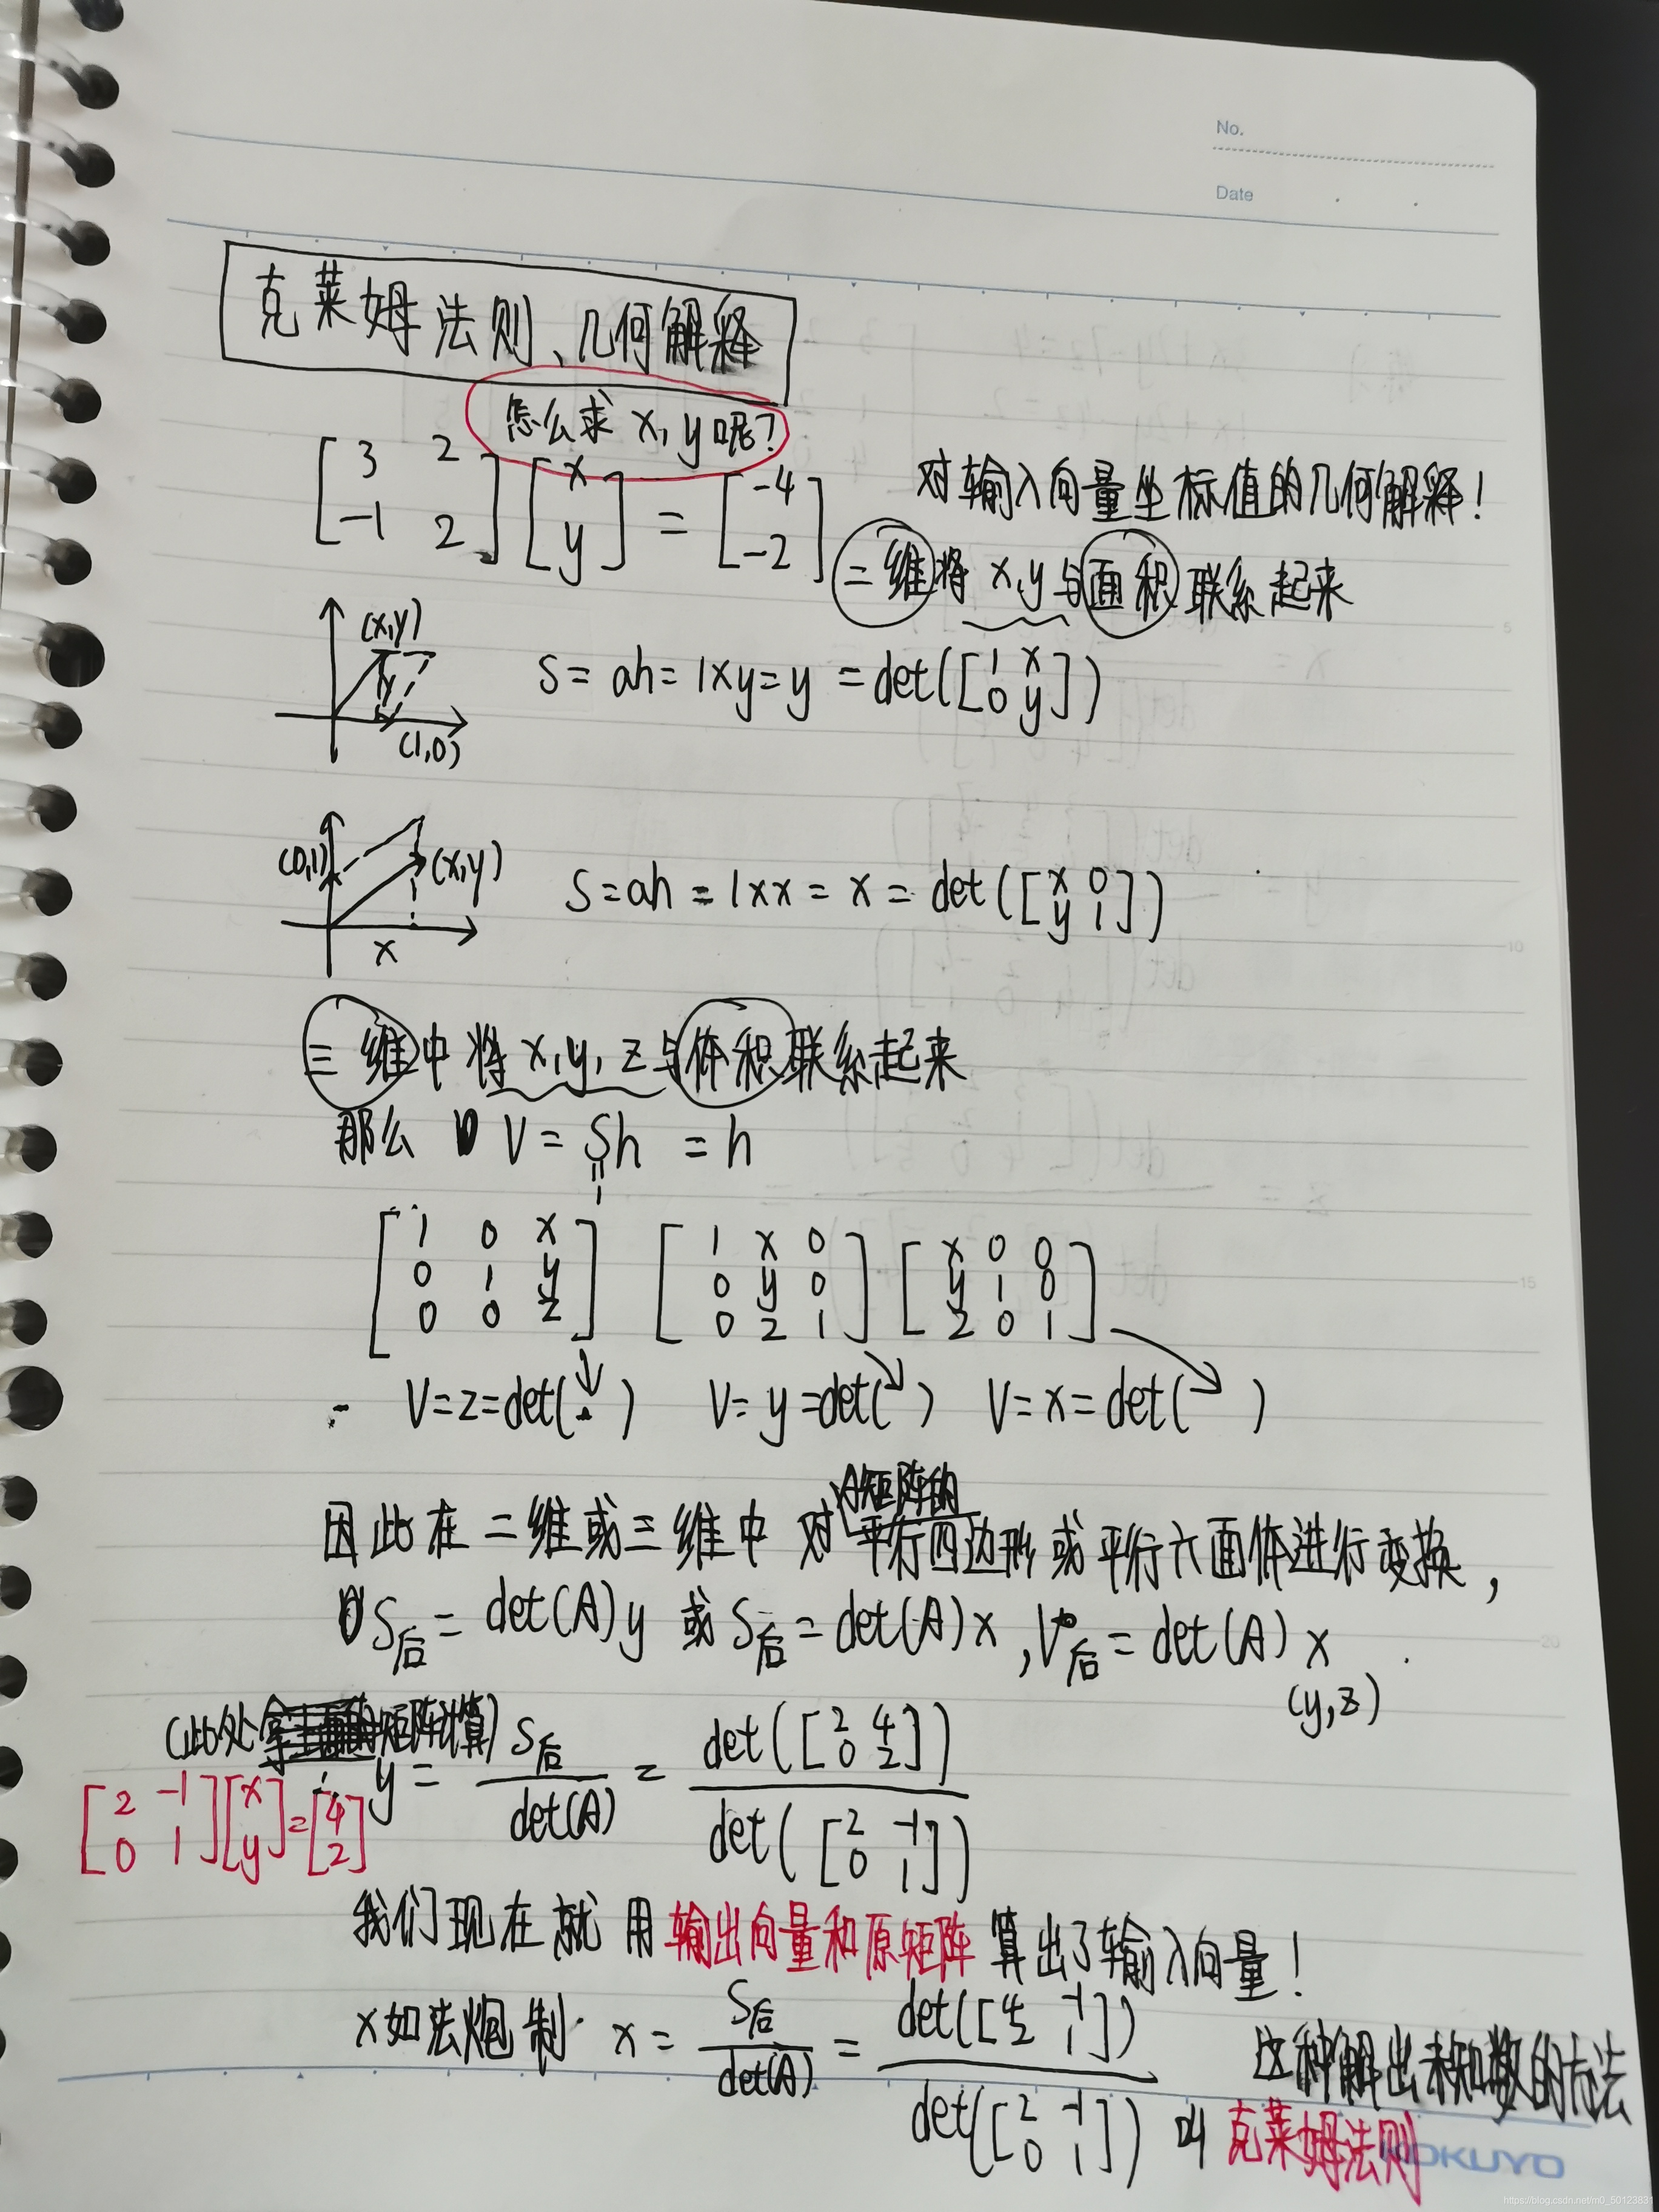 No.
Date
克莱姆法则、几何解释
怎么求 x, y 呢?
[3 2; -1 2] [x; y] = [-4; -2]
对输入向量坐标值的几何解释!
二维将 x,y与面积联系起来
(x,y)
y
(1,0)
S = ah = 1×y = y = det([1 x; 0 y])
(0,1)
(x,y)
x
S = ah = 1×x = x = det([x 0; y 1])
三维中将 x, y, z 与体积联系起来
那么 V = Sh = h
1
[1 0 x; 0 1 y; 0 0 z] [1 x 0; 0 y 0; 0 z 1] [x 0 0; y 1 0; z 0 1]
V=z=det( ) V= y =det( ) V= x = det( )
A矩阵的
因此在二维或三维中 对平行四边形或平行六面体进行变换,
S后 = det(A)y 或 S后 = det(A)x , V后 = det(A) x
(y,z)
(此处 矩阵计算)
[2 -1; 0 1] [x; y] = [4; 2]
y = S后/det(A) = det([2 4; 0 2]) / det([2 -1; 0 1])
我们现在就用输出向量和原矩阵算出了输入向量!
x如法炮制. x = S后/det(A) = det([4 -1; 2 1]) / det([2 -1; 0 1])
这种解出未知数的方法
叫克莱姆法则
KOKUYO
5
10
15
20
https://blog.csdn.net/m0_50123831